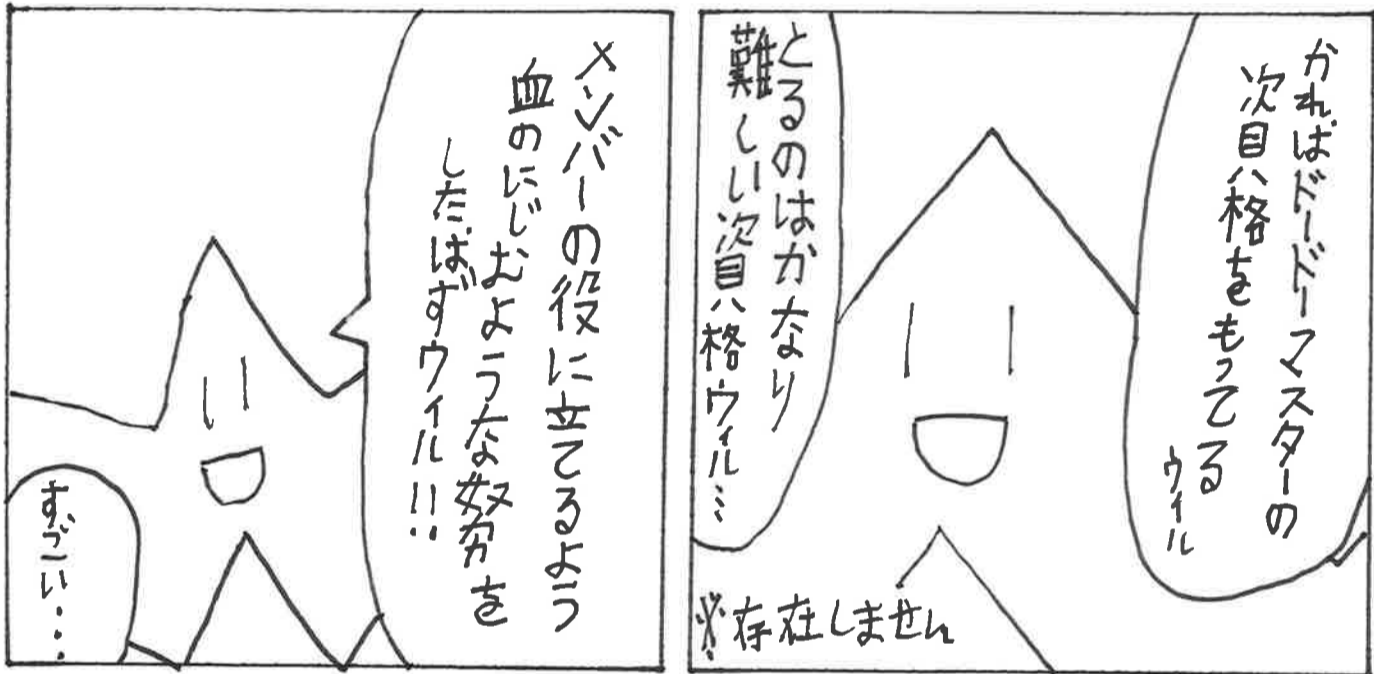 かればドードーマスターの
資格をもってる
ウィル
とるのはかなり
難しい資格ウィル…
※存在しません
メンバーの役に立てるよう
血のにじむような努力を
したばずウィル!!
すごい・・・